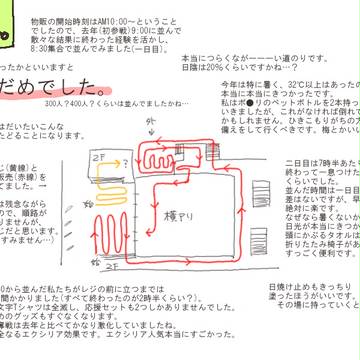 物販の開始時刻はAM10:00～ということ
でしたので、去年(初参戦)9:00に並んで
散々な結果に終わった経験を活かし、
8:30集合で並んでみました(一日目)。
ったかといいますと
だめでした。
300人？400人？くらいは並んでましたかね…
本当につらくながーーーい道のりです。
日陰は20%くらいですかね…？
今年は特に暑く、32℃以上はあったの
本当に本当にきつかったです。
私はポ●リのペットボトルを2本持っ
いきましたが、これがなければ倒れて
かもしれません。ひきこもりがちの方
備えをして行くべきです。梅とかい
はだいたいこんな
たどることになります。
外
2F
？
横アリ
始
始
2F
じ(黄線)と
販売(赤線)を
てました。→
は残念ながら
ので、順路が
りませんが、
じだと思います。
すみません…)
二日目は7時半あたり
終わって一息つけた
くらいでした。
並んだ時間は一日目
差はないですが、早
絶対に楽です。
なぜなら暑くないか
日光が本当にきつか
頭にかぶるタオルは
折りたたみ椅子があ
すっごく便利です。
日焼け止めもきっちり
塗ったほうがいいです。
その場に持っていくと
0から並んだ私たちがレジの前に立つまでは
間かかりました(すべて終わったのが2時半くらい？)。
文字Tシャツは全滅し、応援セットも2つしかありませんでした。
めのグッズもすぐなくなります。
奪戦は去年と比べてかなり激化していましたね。
全なるエクシリア効果です。エクシリア人気本当にすごかった。